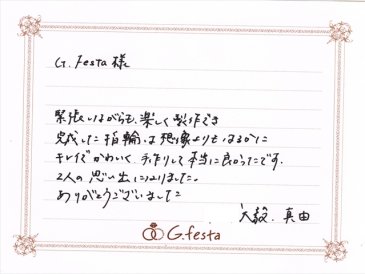 G.Festa様
緊張しながらも、楽しく製作でき
完成した指輪は想像よりもはるかに
キレイでかわいく、手作りして本当に良かったです。
2人の思い出になりました。
ありがとうございました
大毅、真由
G.festa